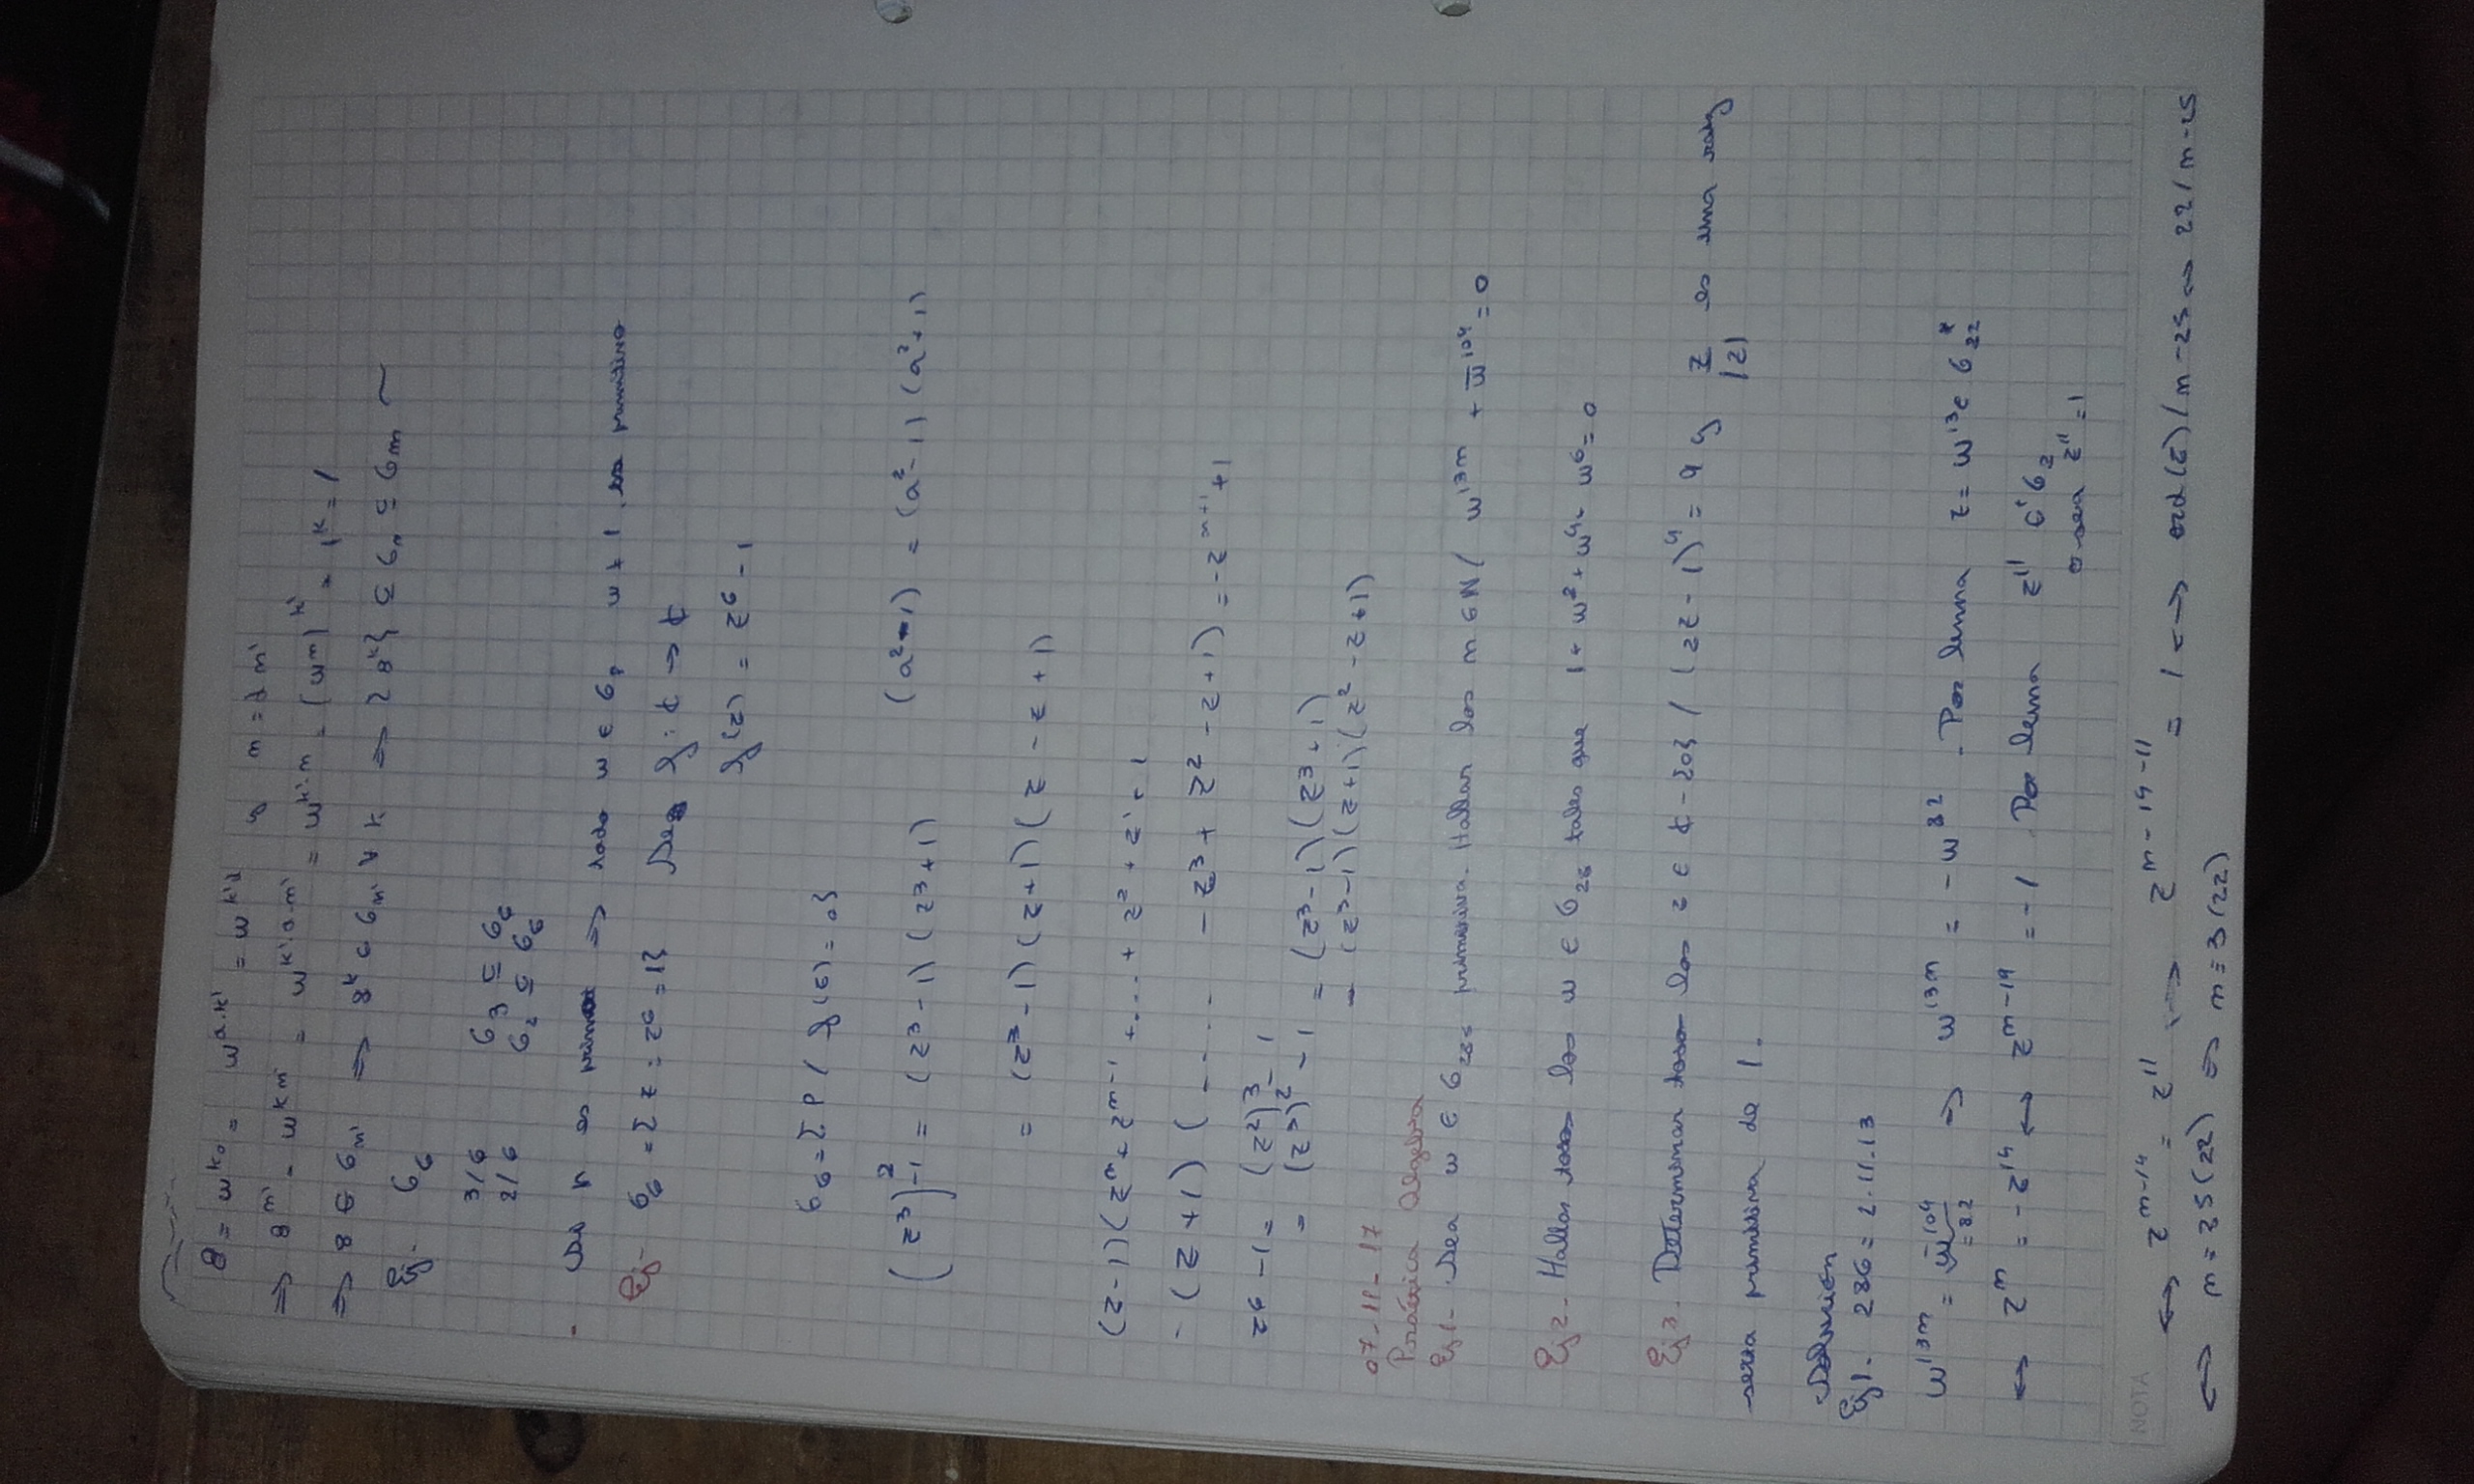 8 = w^k₀ = w^{d·k'} = w^{k'd} y n = d n'
⇒ 8^{n'} = w^{kn'} = w^{k'·d·n'} = w^{k'·n} = (w^n)^{k'} = 1^k = 1
⇒ 8 ∈ G_{n'} ⇒ 8^k ∈ G_{n'} ∀ k ⇒ {8^k} ⊆ G_{n'} ⊆ G_m
Ej. G₆
3/6 G₃ ⊆ G₆
2/6 G₂ ⊆ G₆
- Si p es primo ⇒ todo w ∈ G_p w ≠ 1, es primitiva
Ej- G₆ = { z : z⁶ = 1} Sea f: ℂ → ℂ
f(z) = z⁶ - 1
G₆ = { / f(z) = 0}
(z³)² -1 = (z³ - 1) (z³ + 1) (a² - 1) = (a² - 1) (a² + 1)
= (z³ - 1) (z + 1) (z - z + 1)
(z-1)(z^n + z^{n-1} + .... + z² + z¹ + 1
- (z + 1) ( - - - - - z³ + z² - z + 1) = -z^{n+1} + 1
z⁶ - 1 = (z²)³ - 1
= (z³)² - 1 = (z³ - 1) (z³ + 1)
= (z³ - 1) (z + 1) (z² - z + 1)
07-11-17
Práctica Algebra
Ej 1- Sea w ∈ G₂₈₆ primitiva. Hallar los n ∈ ℕ / w^{13n} + w̄^{104} = 0
Ej 2- Hallar todos los w ∈ G₂₆ tales que 1 + w² + w⁴ + w⁶ = 0
Ej 3. Determinar todos los z ∈ ℂ - {0} / (2z - 1)⁴ = 9 y z/|z| es una raiz
sexta primitiva de 1.
Solución
Ej 1. 286 = 2.11.13
w^{13n} = w̄^{104} = 82 ⇒ w^{13n} = -w^{82} . Por lema z = w^{13} ∈ G₂₂*
↔ z^n = -z^{14} ↔ z^{n-14} = -1 Por lema z^{11} ∈ G₂
o sea z^{11} = 1
NOTA
↔ z^{n-14} = z^{11} ↔ z^{n-14-11} = 1 ↔ ord(z) / n-25 ⇔ 22 / n-25
↔ n ≡ 25 (22) ⇒ n ≡ 3 (22)